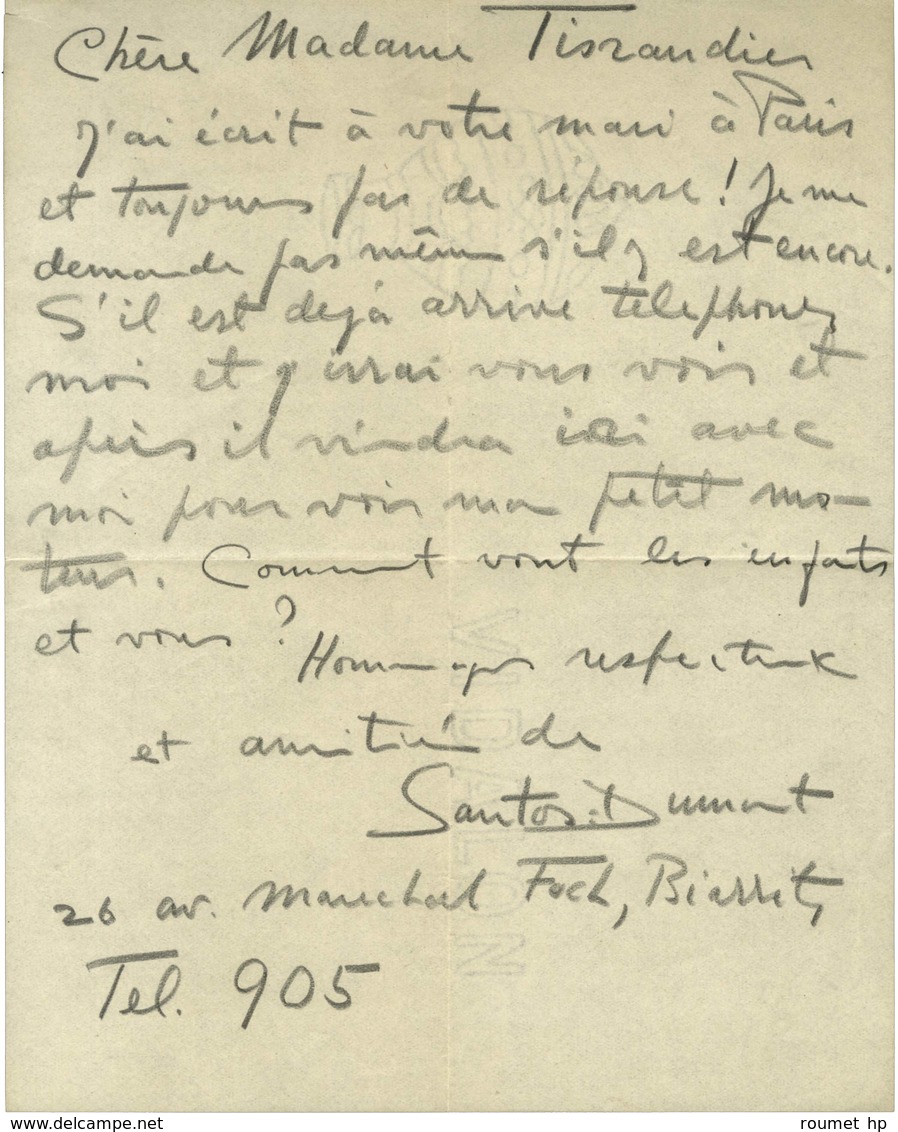 Chère Madame Tissandier
J'ai écrit à votre mari à Paris
et toujours pas de réponse ! Je me
demande pas même s'il y est encore.
S'il est dejà arrivé télephonez
moi et j'irrai vous voir et
après il viendra ici avec
moi pour voir mon petit mo-
teur. Comment vont les enfants
et vous ?
Hommages respectueux
et amitié de
Santos=Dumont
26 av. Marechal Foch, Biarritz
Tel. 905
www.delcampe.net
roumet hp